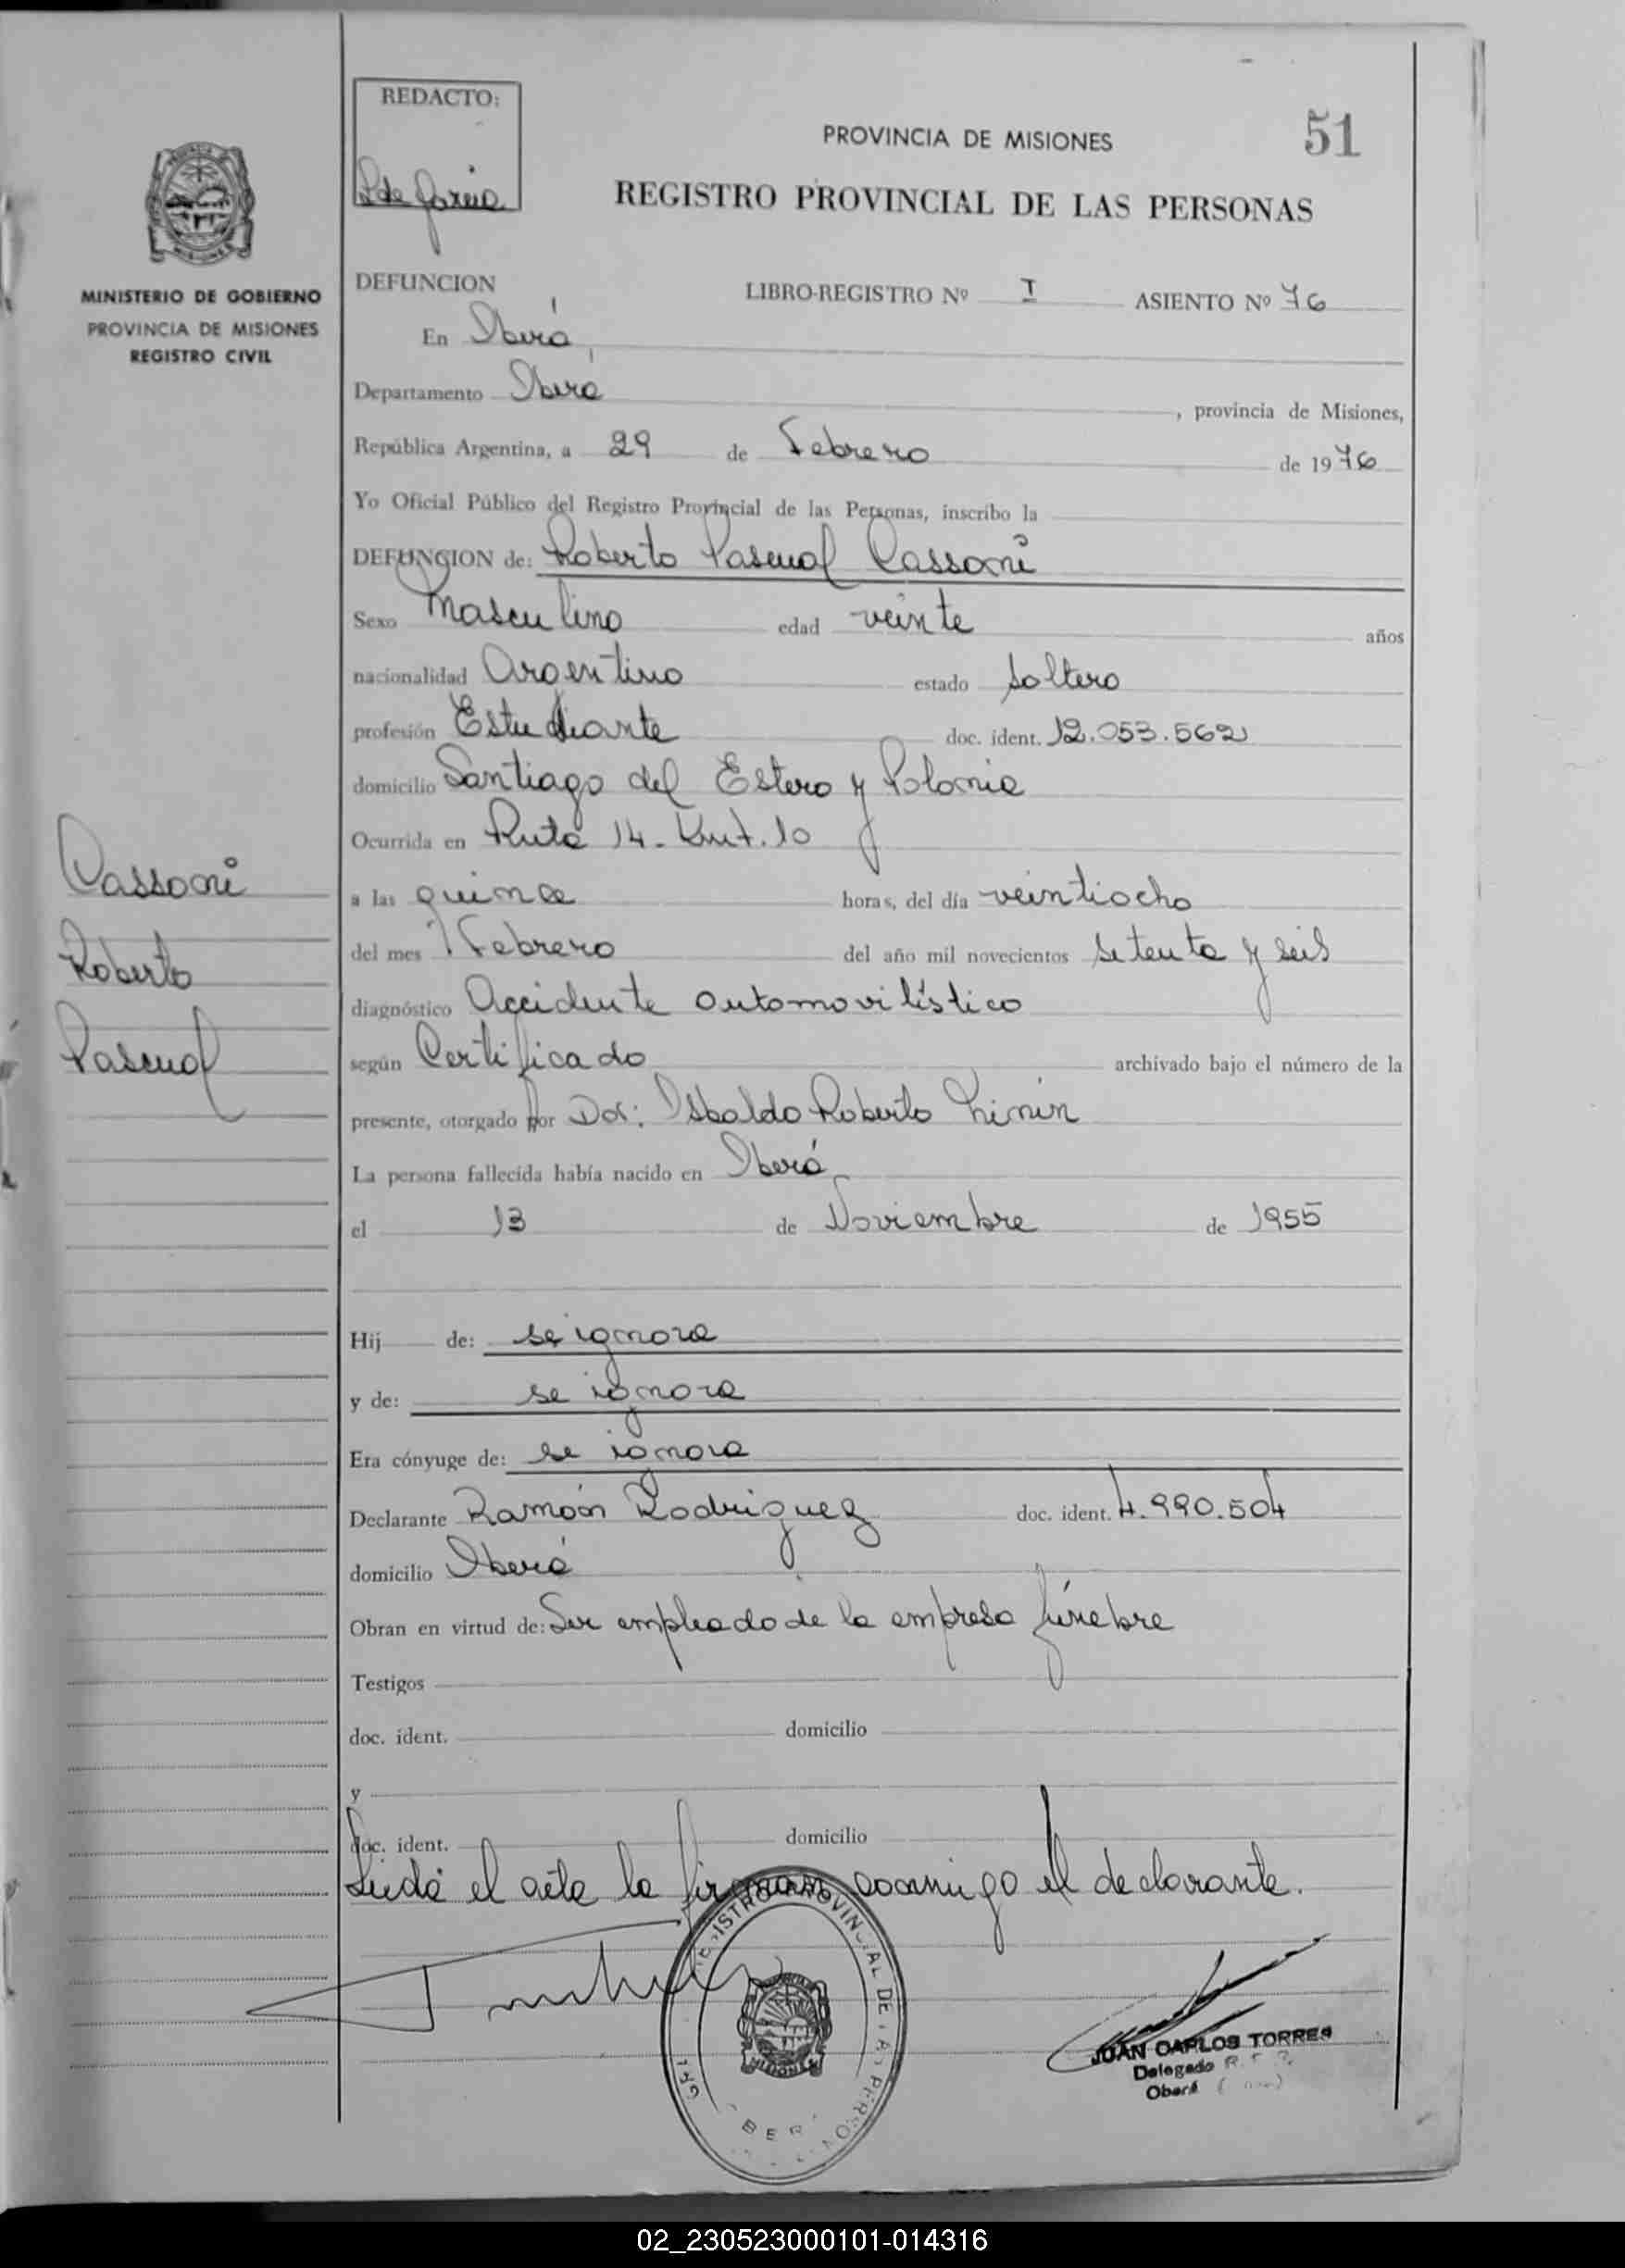 REDACTO:
PROVINCIA DE MISIONES
51
L de García
REGISTRO PROVINCIAL DE LAS PERSONAS
MINISTERIO DE GOBIERNO
PROVINCIA DE MISIONES
REGISTRO CIVIL
DEFUNCION LIBRO-REGISTRO Nº I ASIENTO Nº 76
En Oberá,
Departamento Oberá, provincia de Misiones,
República Argentina, a 29 de Febrero de 1976
Yo Oficial Público del Registro Provincial de las Personas, inscribo la
DEFUNCION de: Roberto Pascual Cassoni
Sexo Masculino edad veinte años
nacionalidad Argentino estado Soltero
profesión Estudiante doc. ident. 12.053.562
domicilio Santiago del Estero y Polonia
Ocurrida en Ruta 14 - Kmt. 10
a las quince horas, del día veintiocho
del mes Febrero del año mil novecientos setenta y seis
diagnóstico Accidente automovilístico
según Certificado archivado bajo el número de la
presente, otorgado por Dor: Osbaldo Roberto
La persona fallecida había nacido en Oberá
el 13 de Noviembre de 1955
Hij de: se ignora
y de: se ignora
Era cónyuge de: se ignora
Declarante Ramón Rodriguez doc. ident. 4.990.504
domicilio Oberá
Obran en virtud de: Ser empleado de la empresa fúnebre
Testigos
doc. ident. domicilio
y
doc. ident. domicilio
Leída el acta la firman conmigo el declarante.
Cassoni
Roberto
Pascual
REGISTRO PROVINCIAL DE LAS PERSONAS
MISIONES
JUAN CARLOS TORRES
Delegado R.
Oberá
02_230523000101-014316